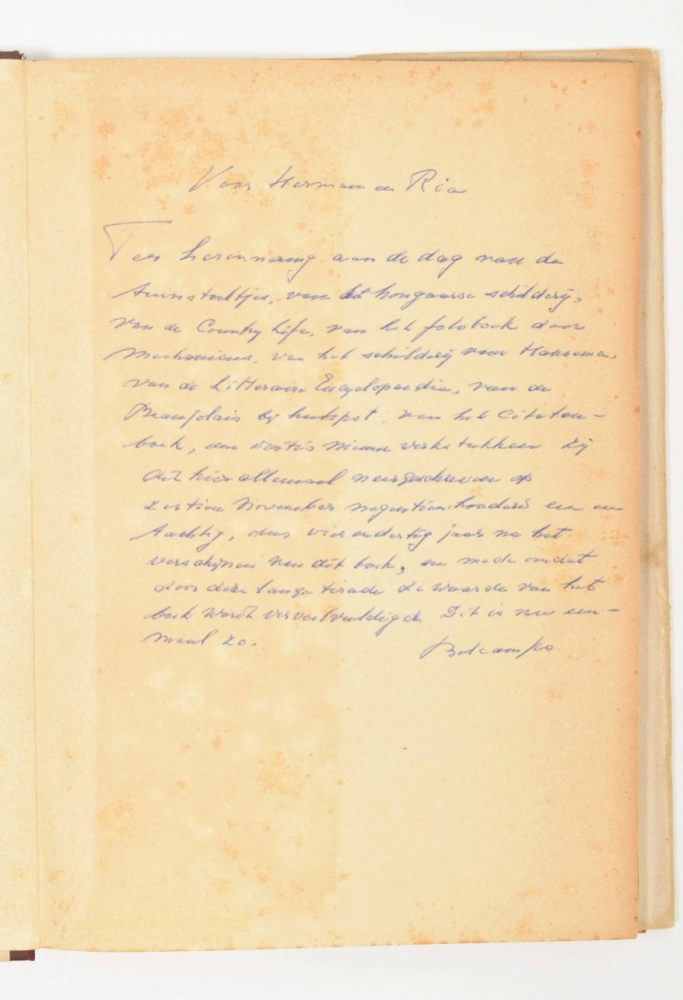 Voor Herman en Ria
Ter herinnering aan de dag van de
tuinstoeltjes, van het hongaarse schilderij,
van de Country Life, van het fotoboek door
Mechanicus, van het schilderij voor
van de Litteraire Encyclopaedia, van de
Beaujolais bij hutspot, van het Citaten-
boek, van Nieuwe zij
dit hier allemaal neergeschreven op
zestien November negentienhonderd een en
tachtig, dus vierendertig jaar na het
verschijnen van dit boek, en mede omdat
door deze lange tirade de waarde van het
boek wordt verveelvuldigd. Dit is nu een-
maal zo. Belcampo